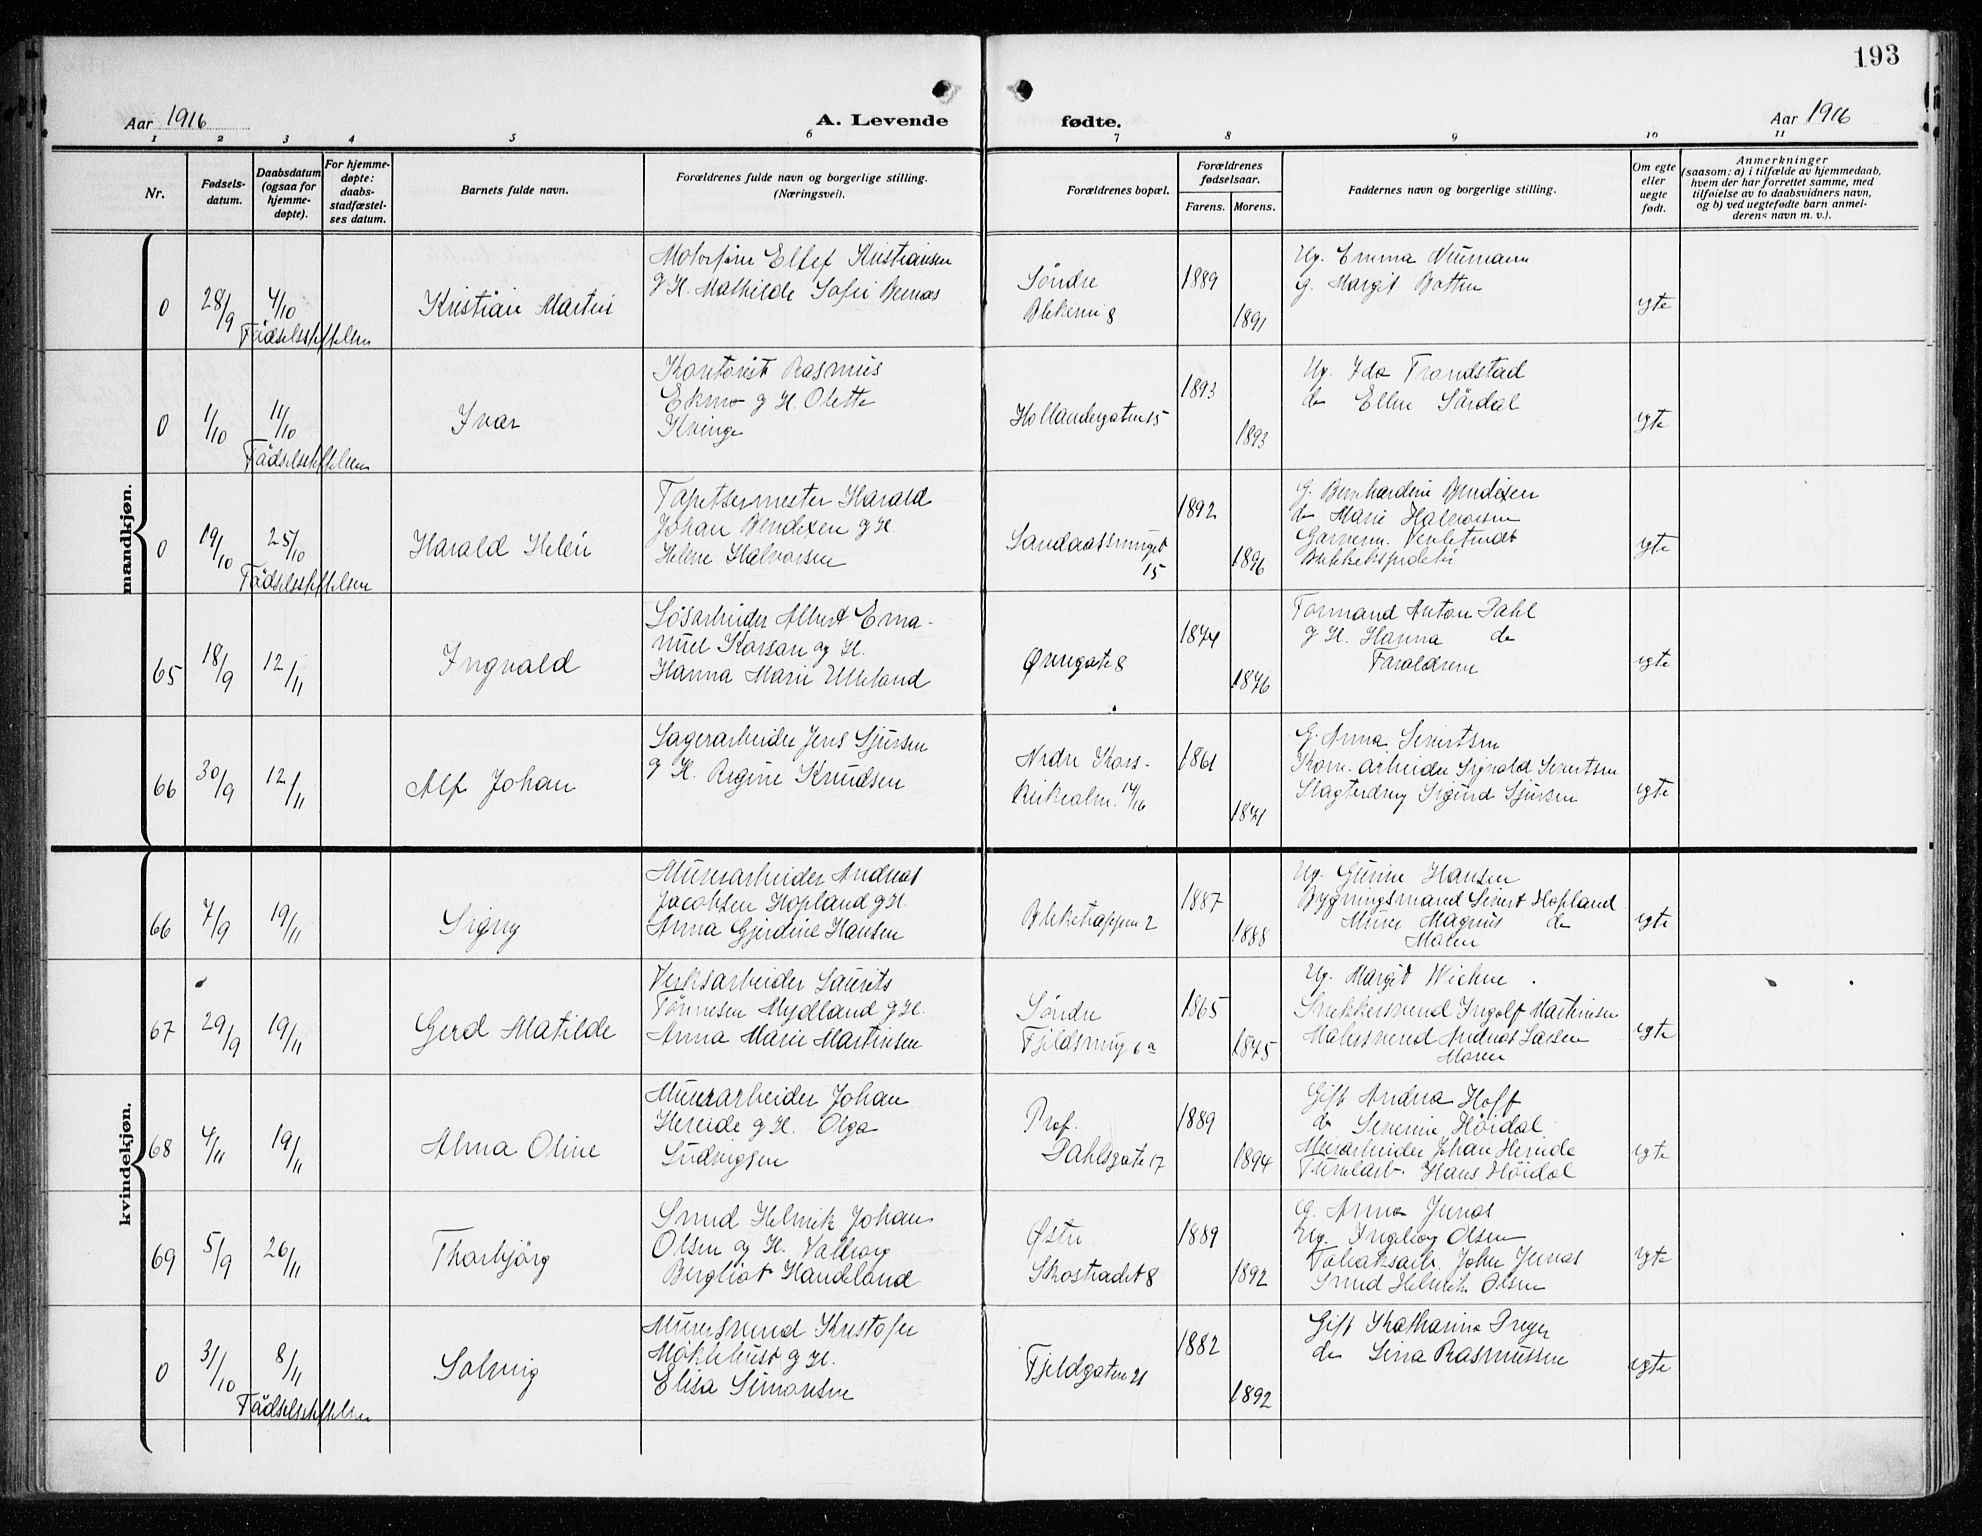 193
Aar 1916
A. Levende
fødte.
Aar 1916
1 2 3 4 5 6 7 8 9 10 11
Nr.
Fødsels-
datum.
Daabsdatum
(ogsaa for
hjemme-
døpte).
For hjemme-
døpte:
daabs-
stadfæstel-
ses datum.
Barnets fulde navn.
Forældrenes fulde navn og borgerlige stilling.
(Næringsvei).
Forældrenes bopæl.
Forældrenes
fødselsaar.
Farens. Morens.
Faddernes navn og borgerlige stilling.
Om egte
eller
uegte
født.
Anmerkninger
(saasom: a) i tilfælde av hjemmedaab,
hvem der har forrettet samme, med
tilføielse av to daabsvidners navn,
og b) ved uegtefødte barn anmel-
derens navn m. v.).
mandkjøn.
0 28/9 4/10
Fødselsstiftelsen
Kristian Martin
Ellef Kristiansen
g H. Mathilde Sofie
Søndre
8
1889
1891
Ug. Emma Neumann
g. Margit Botten
egte
0 1/10 11/10
Fødselsstiftelsen
Ivar
Kontorist Rasmus
g H. Olette
Kvinge
Hollendergaten 15
1893
1893
Ug. Ida Trandstad
do Ellen Sørdal
egte
0 19/10 25/10
Fødselsstiftelsen
Harald
Tapetsermester Harald
Johan Bendixen g H.
Helene Halvorsen
15
1892
1896
G. Bernhardine Bendixen
do Marie Halvorsen
egte
65 18/9 12/11
Ingvald
Søsarbeider Albert Ema-
nuel Karsan og H.
Hanna Marie Ulleland
Øvregate 8
1874
1876
Formand Anton Dahl
g H. Hanna do
Forældrene
egte
66 30/9 12/11
Alf Johan
Lagerarbeider Jens Sjursen
g H. Regine Knudsen
Nedre Kors-
kirkealm. 14/16
1861
1871
G. Anna Sivertsen
Korn. arbeider Sigvald Sivertsen
Slagterdreng Sigurd Sjursen
egte
kvindekjøn.
66 7/9 19/11
Signy
Murerarbeider Andreas
Jacobsen Hopland g H.
Anna Gjerdine Hansen
Blekketrappen 2
1887
1888
Ug. Gurine Hansen
Bygningsmand Sivert Hopland
Murer Magnus do
Moren
egte
67 29/9 19/11
Gerd Matilde
Verksarbeider Laurits
Tønnesen Mydland g H.
Anna Marie Martinsen
Søndre
Fjeldsmug 6a
1865
1875
Ug. Margit Wichne
Snekkersvend Ingolf Martinsen
Malersvend Andreas Larsen
Moren
egte
68 4/11 19/11
Alma Oline
Murerarbeider Johan
Hereide g H. Olga
Ludvigsen
Prof.
Dahlsgate 17
1889
1894
Gift Andrea Hoff
do Severine Høidal
Murarbeider Johan Hereide
Hans Høidal
egte
69 5/9 26/11
Thorbjörg
Smed Helmik Johan
Olsen og H. Valborg
Bergliot Handeland
Østre
Skostrædet 8
1889
1892
G. Anna Junas
Ug. Ingeborg Olsen
Tobaksarb. John Junas
Smed Helmik Olsen
egte
0 31/10 8/11
Fødselsstiftelsen
Solveig
Murersvend Kristofer
Möklebust g H.
Elisa Simonsen
Fjeldgaten 21
1882
1892
Gift Katharina Dreyer
do Lina Rasmussen
egte